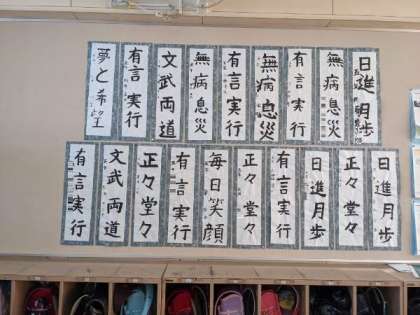 日進月歩
無病息災
有言実行
無病息災
有言実行
無病息災
文武両道
有言実行
夢と希望
日進月歩
正々堂々
日進月歩
有言実行
正々堂々
毎日笑顔
有言実行
正々堂々
文武両道
有言実行